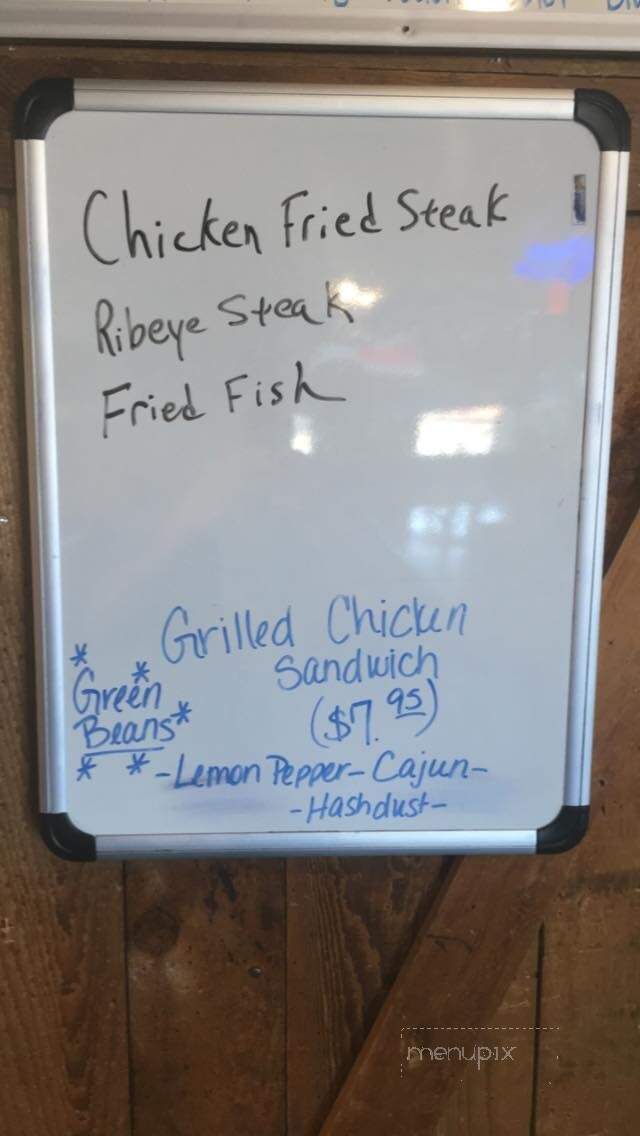 Chicken Fried Steak
Ribeye Steak
Fried Fish
Grilled Chicken
Sandwich
($7.95)
* Green *
Beans*
* *
-Lemon Pepper- Cajun-
-Hashdust-
menupix